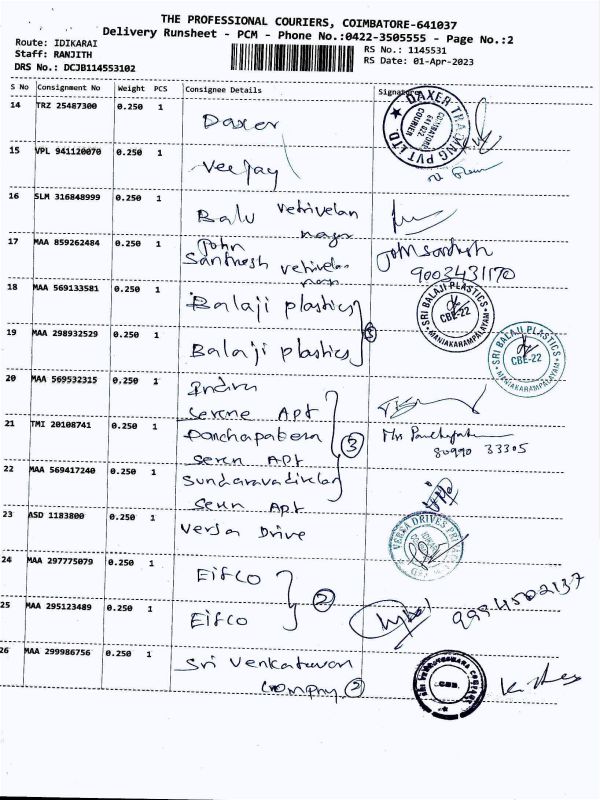 THE PROFESSIONAL COURIERS, COIMBATORE-641037
Delivery Runsheet - PCM - Phone No.:0422-3505555 - Page No.:2
Route: IDIKARAI
RS No.: 1145531
Staff: RANJITH
RS Date: 01-Apr-2023
DRS No.: DCJB114553102
S No Consignment No Weight PCS Consignee Details Signature
14 TRZ 25487300 0.250 1 Daxer
DAXER TRADING PVT LTD COIMBATORE 641 012 COURIER
15 VPL 941120070 0.250 1 Veejay
16 SLM 316848999 0.250 1 Balu vetrivelan
nagar
17 MAA 859262484 0.250 1 John
Santhosh vetrivelan
nagar
John santhosh
9003431170
18 MAA 569133581 0.250 1 Balaji plastics
SRI BALAJI PLASTICS CBE-22 MANIAKARAMPALAYAM
19 MAA 298932529 0.250 1 Balaji plastics
SRI BALAJI PLASTICS CBE-22 MANIAKARAMPALAYAM
20 MAA 569532315 0.250 1 Indira
Serene Apt
21 TMI 20108741 0.250 1 Panchapakesa
seren Apt
3
80990 33305
22 MAA 569417240 0.250 1 Sundaravadivelan
seren Apt
23 ASD 1183800 0.250 1 Versa Drive
VERSA DRIVES
24 MAA 297775079 0.250 1 Eifco
2
25 MAA 295123489 0.250 1 Eifco
9994502137
26 MAA 299986756 0.250 1 Sri Venkatavan
Company